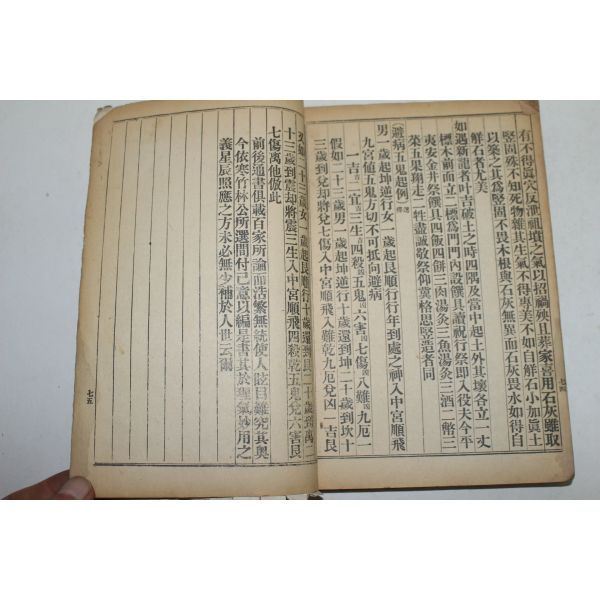 有不得眞穴反泄祖墳之氣以招禍殃且葬家喜用石灰雖取
堅固殊不知死物雜其生氣不得專美不如自鮮石小加眞土
以築之其爲堅固不畏木根與石灰無異而石灰畏水如得自
鮮石者尤美
如遇新龍者叶吉破土之時四隅及當中起土外其壞各立一丈
標木前面立二標爲門門內設饌具讀祝行祭即入役夫今平
夷安金井祭饌具四飯四餠三肉湯灸三魚湯灸三酒二幣三
菜五果翔走二牲盡誠敬祭仰冀格思竪造者同
(避病五鬼起例)
男一歲起坤逆行女一歲起艮順行行年到處之神入中宮順飛
九宮値五鬼方切不可抵向避病
一吉吉二宜吉三生吉四殺凶五鬼凶六害凶七傷凶八難凶九厄凶
假如二十三歲男一歲起坤逆行十歲還到坤二十歲到坎十
三歲到兌却將兌七傷入中宮順飛入難乾九厄兌凶一吉艮
又如二十三歲女一歲起艮順行十歲還到艮二十歲到离二
十三歲到震却將震三生入中宮順飛四殺乾五鬼兌六害艮
七傷离他倣此
前後通書俱載百家所論而浩繁無統使人眩目難究其奧
今依寒竹林公所選間付己意以編是書其於理氣妙用之
義星辰照應之方未必無少補於人世云爾
七四
七五